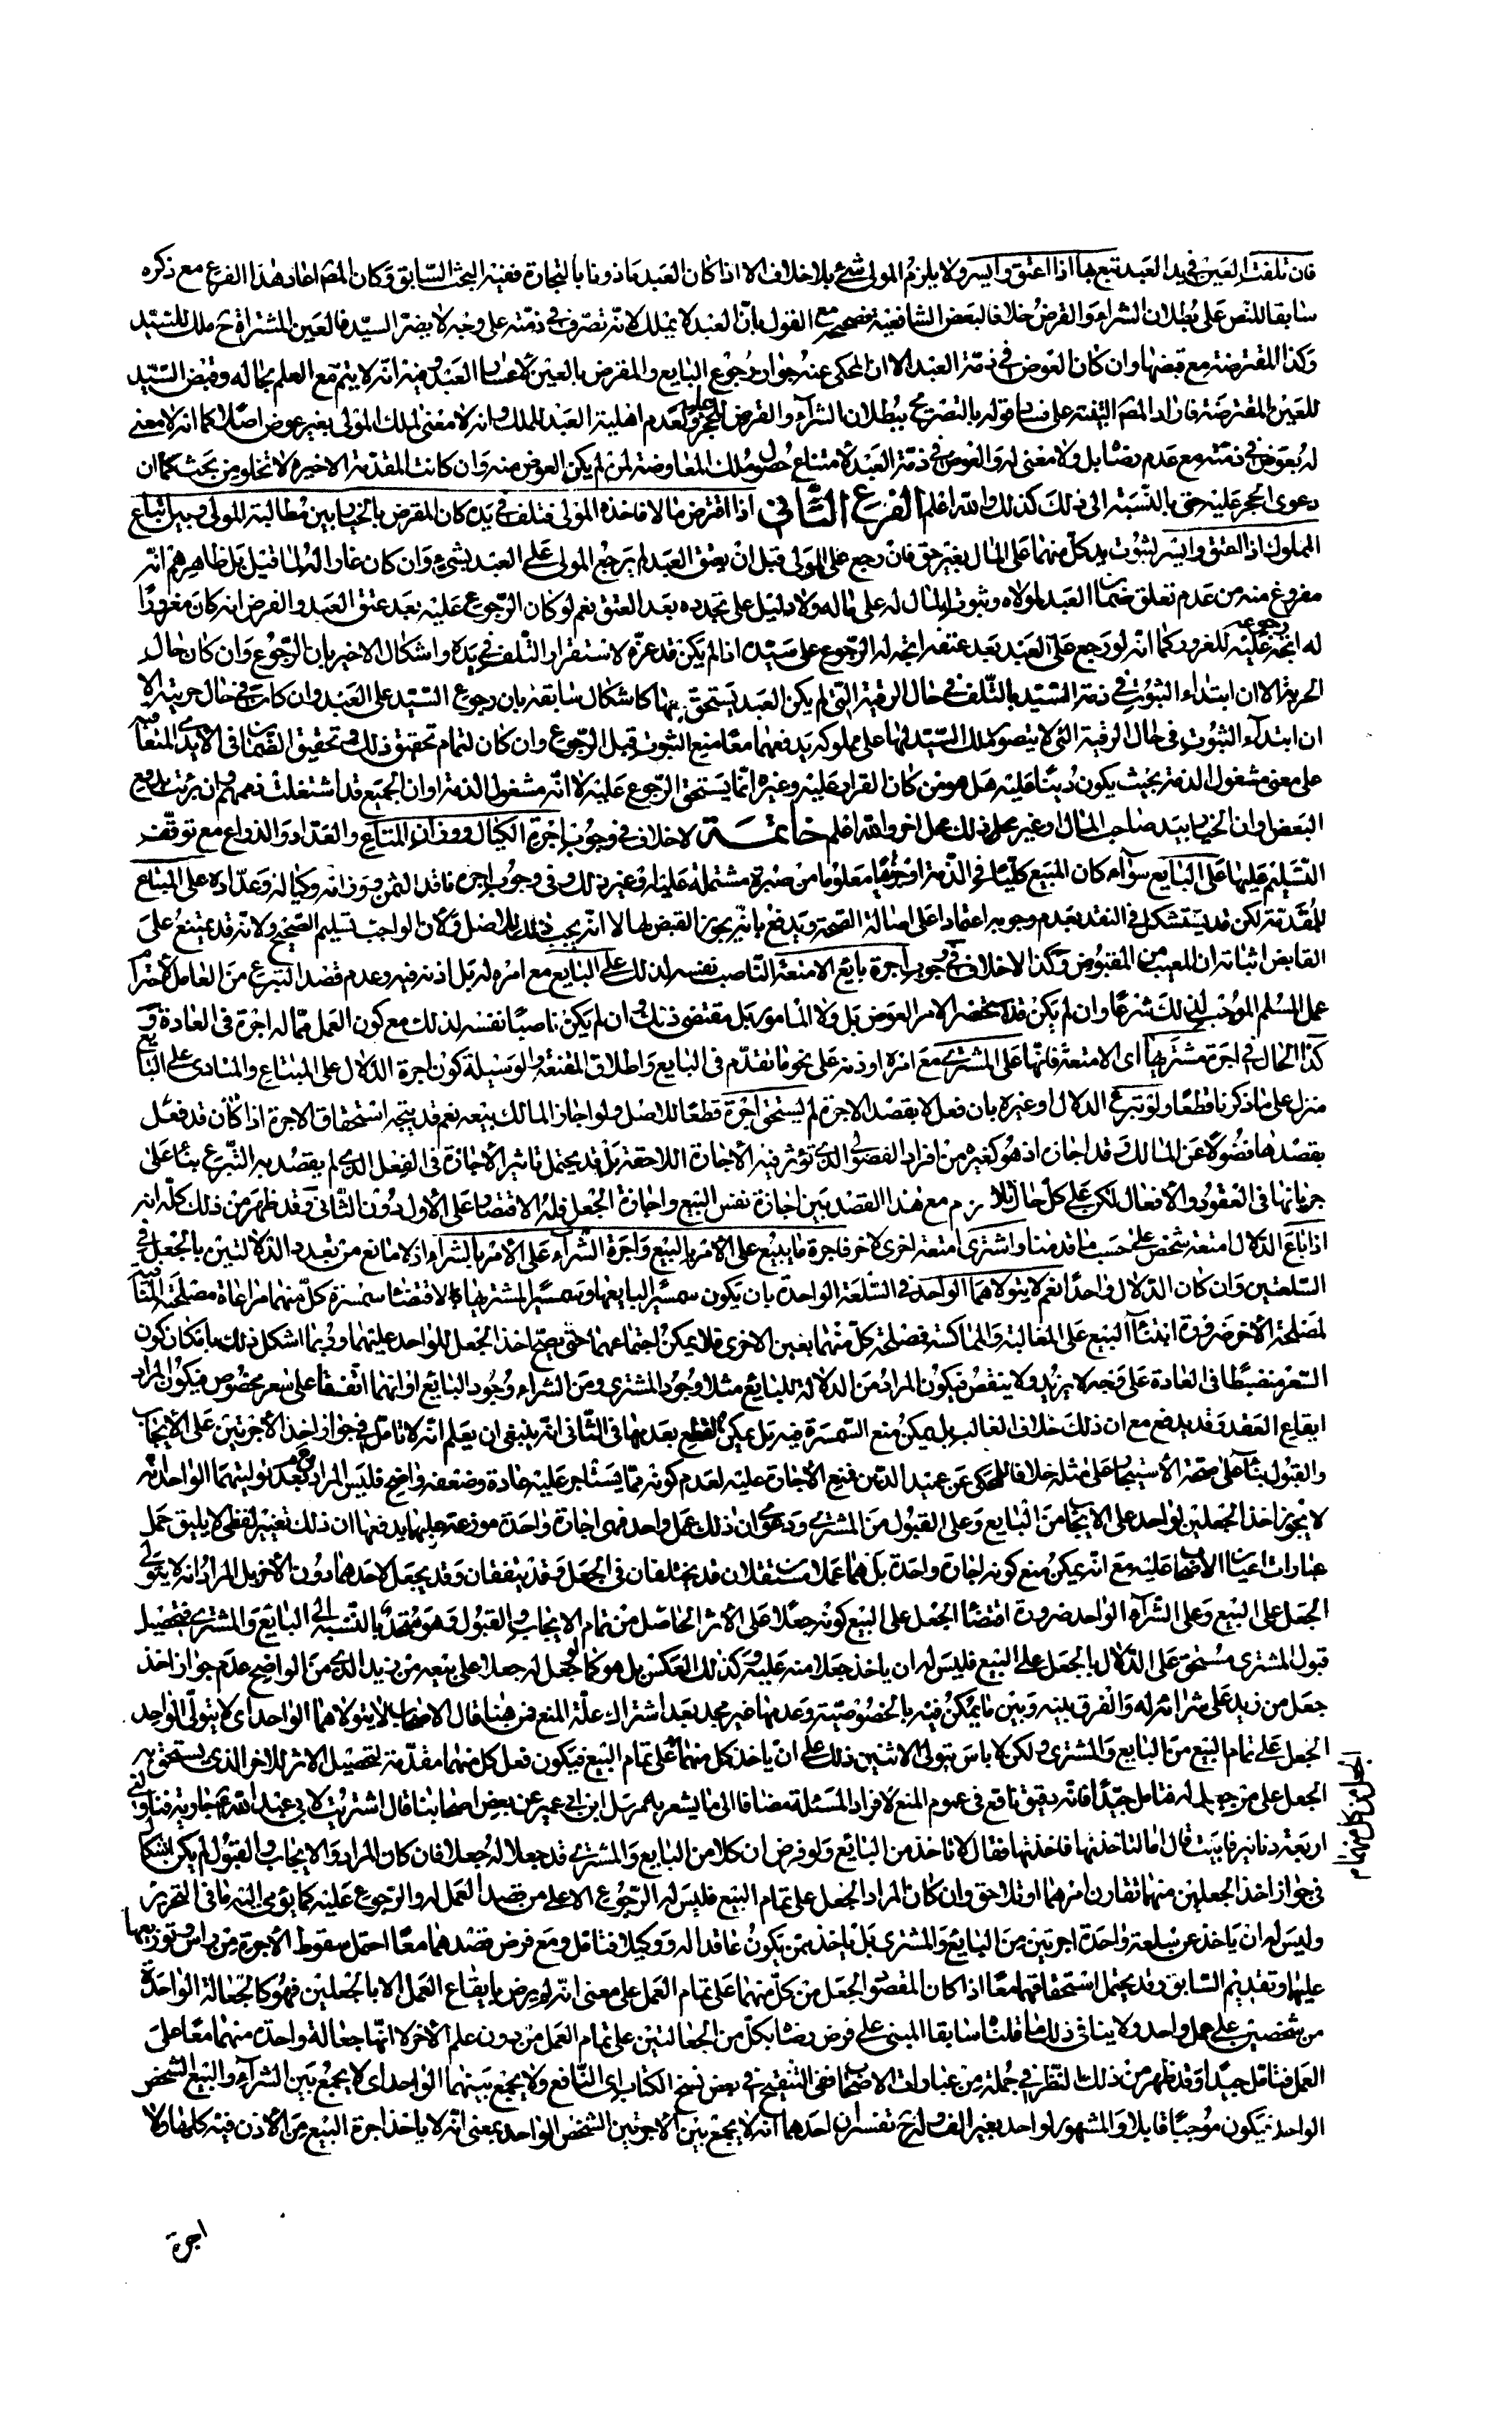 فان تلفت العين في يد العبد تبع بها اذا اعتق وايسر ولا يلزم المولى شيء بلا خلاف الا اذا كان العبد ماذونا بالتجارة ففيه البحث السابق وكان المصـ اعاد هذا الفرع مع ذكره
سابقا للنص على بطلان الشراء والقرض خلافا لبعض الشافعية فصححه مع القول بان العبد لا يملك لانه تصرف في ذمته على وجه لا يضر السيد فالعين المشتراة ح ملك للسيد
وكذا المقترضة مع قبضها وان كان العوض في ذمة العبد الا ان المحكى عنه جواز رجوع البايع والمقرض بالعين لاعسار العبد وفيه انه لا يتم مع العلم بحاله وقبض السيد
للعين المقترضة فاراد المصـ التنبيه على فساد قوله بالتصريح ببطلان الشراء والقرض للحجر عليه ولعدم اهلية العبد للملك وانه لا معنى لملك المولى بغير عوض اصلا كما انه لا معنى
له بعوض في ذمته مع عدم رضاه بل ولا معنى له والعوض في ذمة العبد لامتناع حصول ملك المعاوضة لمن لم يكن العوض منه وان كانت المقدمة الاخيرة لا تخلو من بحث كما ان
دعوى الحجر عليه حتى بالنسبة الى ذلك كذلك والله اعلم الفرع الثاني اذا اقترض مالا فاخذه المولى فتلف في يده كان المقرض بالخيار بين مطالبة المولى وبين اتباع
المملوك اذا اعتق وايسر لثبوت يد كل منهما على المال بغير حق فان رجع على المولى قبل ان يعتق العبد لم يرجع المولى على العبد بشيء وان كان عاد اليه لما قيل بل ظاهرهم انه
مفروغ منه من عدم تعلق ضمان العبد لمولاه وثبوت المال له على ماله ولا دليل على تجدده بعد العتق نعم لو كان الرجوع عليه بعد عتق العبد والفرض انه كان مغرورا
له اتجه رجوعه عليه للغرور كما انه لو رجع على العبد بعد عتقه اتجه له الرجوع على سيده اذا لم يكن قد غره لاستقرار التلف في يده واشكال الاخير بان الرجوع وان كان حال
الحرية الا ان ابتداء الثبوت في ذمة السيد بالتلف في حال الرقية التي لم يكن العبد يستحق بها كاشكال سابقه بان رجوع السيد على العبد وان كان في حال حريته الا
ان ابتداء الثبوت في حال الرقية التي لا يتصور ملك السيد فيها على مملوكه يدفعهما معا منع الثبوت قبل الرجوع وان كان لتمام تحقيق ذلك وتحقيق الضمان في الايدي المتعاقبة
على معنى مشغول الذمة بحيث يكون دينا عليه هل هو من كان القرار عليه وغيره انما يستحق الرجوع عليه لا انه مشغول الذمة او ان الجميع قد اشتغلت ذممهم وان برئت بدفع
البعض وان الخيار بيد صاحب المال او غير ذلك محل اخر والله اعلم خاتمة لا خلاف في وجوب اجرة الكيال ووزان المتاع والعداد والذراع مع توقف
التسليم عليها على البايع سواء كان المبيع كليا في الذمة او جزئيا معلوما من صبرة مشتملة عليه او غير ذلك وفي وجوب اجرة ناقد الثمن ووزانه وكياله وعداده على المبتاع
للمقدمة لكن قد يستشكل في النقد بعدم وجوبه اعتمادا على اصالة الصحة ويدفع بانه يجوز القبض بها الا انه يجب ذلك للاصل ولان الواجب تسليم الصحيح ولانه قد يمتنع على
القابض اثباته ان المعيب من المقبوض وكذا لا خلاف في وجوب اجرة بايع الامتعة الناصب نفسه لذلك على البايع مع امره له بل اذنه فيه وعدم قصد التبرع من العامل لاحترام
عمل المسلم الموجب لذلك شرعا وان لم يكن قد استحضر الامر العوض بل ولا المامور بل مقتضى ذلك وان لم يكن ناصبا نفسه لذلك مع كون العمل مما له اجرة في العادة و
كذا الحال في اجرة مشتريها اي الامتعة فانها على المشتري مع امره او اذنه على نحو ما تقدم في البايع واطلاق المقنعة والوسيلة كون اجرة الدلال على المبتاع والمنادى على البايع
منزل على ما ذكرنا قطعا ولو تبرع الدلال او غيره بان فعل لا بقصد الاجرة لم يستحق اجرة قطعا للاصل ولو اجاز المالك بيعه نعم قد يتجه استحقاق الاجرة اذا كان قد فعل
بقصدها فضولا عن المالك وقد اجاز اذ هو كغيره من افراد الفضولي الذي تؤثر فيه الاجازة اللاحقة بل قد يحتمل تاثير الاجازة في الفعل الذي لم يقصد به التبرع بناء على
جريانها في العقود والافعال لكن على كل حال تلازم مع هذا القصد بين اجازة نفس البيع واجازة الجعل فله الاقتصار على الاول دون الثاني وقد ظهر من ذلك كله انه
اذا باع الدلال امتعة شخص على حسب ما قدمنا واشترى امتعة اخرى لاخر فاجرة ما يبيع على الامر بالبيع واجرة الشراء على الامر بالشراء اذ لا مانع من تعدد الدلالتين بالجعل في
السلعتين وان كان الدلال واحدا نعم لا يتولاهما الواحد في السلعة الواحدة بان يكون سمسيرا لبايعها وسمسيرا لمشتريها لاقتضاء سمسرة كل منهما مراعاة مصلحته المنافية
لمصلحة الاخر ضرورة ابتناء البيع على المغالبة والمماكسة فمصلحة كل منهما بغبن الاخرى فلا يمكن اجتماعهما حتى يصح اخذ الجعل للواحد عليهما وربما اشكل ذلك بامكان كون
السعر منضبطا في العادة على وجه لا يزيد ولا ينقص فيكون المراد من الدلالة للبايع مثلا وجود المشتري ومن الشراء وجود البايع او انهما اتفقا على سعر مخصوص فيكون المراد
ايقاع العقد وقد يدفع مع ان ذلك خلاف الغالب بل يمكن منع السمسرة فيه بل يمكن القطع بعدمها في الثاني انه ينبغي ان يعلم انه لا تامل في جواز اخذ الاجرتين على الايجاب
والقبول بناء على صحة الاستيجار على مثله خلافا للمحكى عن عميد الدين فمنع الاجارة عليه لعدم كونه مما يستاجر عليه عادة وضعفه واضح فليس المراد ح بعدم توليتهما الواحد انه
لا يجوز اخذ الجعلين لواحد على الايجاب من البايع وعلى القبول من المشتري ودعوى ان ذلك عمل واحد فهي اجارة واحدة موزعة عليهما يدفعها ان ذلك تعبير لفظي لا يليق حمل
عبارات اعيان الاصحاب عليه مع انه يمكن منع كونه اجارة واحدة بل هما عملان مستقلان قد يختلفان في الجعل وقد يتفقان وقد يجعل لاحدهما دون الاخر بل المراد انه لا يتولى
الجعل على البيع وعلى الشراء الواحد ضرورة اقتضاء الجعل على البيع كونه جعلا على الاثر الحاصل من تمام الايجاب والقبول وهو متحد بالنسبة الى البايع والمشتري فتحصيل
قبول المشتري مستحق على الدلال بالجعل على البيع فليس له ان ياخذ جعلا منه عليه وكذلك العكس بل هو كما لو جعل له جعلا على بيعه من زيد الذي من الواضح عدم جواز اخذ
جعل من زيد على شرائه له والفرق بينه وبين ما يمكن فيه بالخصوصية وعدمها غير مجد بعد اشتراك علة المنع فمن هنا قال الاصحاب لا يتولاهما الواحد اي لا يتولى الواحد
الجعل على تمام البيع من البايع والمشتري ولكن لا باس بتولى الاثنين ذلك على ان ياخذ كل منهما على تمام البيع فيكون فعل كل منهما مقدمة لتحصيل الاثر للاخر الذي يستحق به
الجعل على من جعل له فتامل جيدا فانه دقيق نافع في عموم المنع لافراد المسئلة مضافا الى ما يشعر به مرسل ابن ابي عمير عن بعض اصحابنا قال اشتريت لابي عبد الله ع جارية فناولني
اربعة دنانير فابيت قال لتاخذنها فاخذتها فقال لا تاخذ من البايع ولو فرض ان كلا من البايع والمشتري قد جعلا له جعلا فان كان المراد والايجاب والقبول لم يكن اشكال
في جواز اخذ الجعلين منهما تقارن امرهما او تلاحق وان كان المراد الجعل على تمام البيع فليس له الرجوع الا على من قصد العمل له والرجوع عليه كما يؤمي اليه ما في التحرير
وليس له ان ياخذ عن سلعة واحدة اجرتين من البايع والمشتري بل ياخذ ممن يكون عاقدا له ووكيلا فتامل ومع فرض قصدهما معا احتمل سقوط الاجرة من راس وتوزيعها
عليهما وتقديم السابق وقد يحتمل استحقاقهما معا اذا كان المقصود الجعل من كل منهما على تمام العمل على معنى انه لم يرض بايقاع العمل الا بالجعلين فهو كالجعالة الواحدة
من شخصين على عمل واحد ولا ينافي ذلك ما قلناه سابقا المبنى على فرض رضاه بكل من الجعالتين على تمام العمل من بدون علم الاخر لا انها جعالة واحدة منهما معا على
العمل فتامل جيدا وقد ظهر من ذلك النظر في جملة من عبارات الاصحاب ففي التنقيح في بعض نسخ الكتاب اي النافع ولا يجمع بينهما الواحد اي لا يجمع بين الشراء والبيع الشخص
الواحد فيكون موجبا قابلا والمشهور لواحد بغير الف ولنرجح تفسران احدهما انه لا يجمع بين الاجرتين الشخص الواحد بمعنى انه لا ياخذ اجرة البيع من الاذن فيه كلها ولا
الجعل من كل منهما م
اجرة